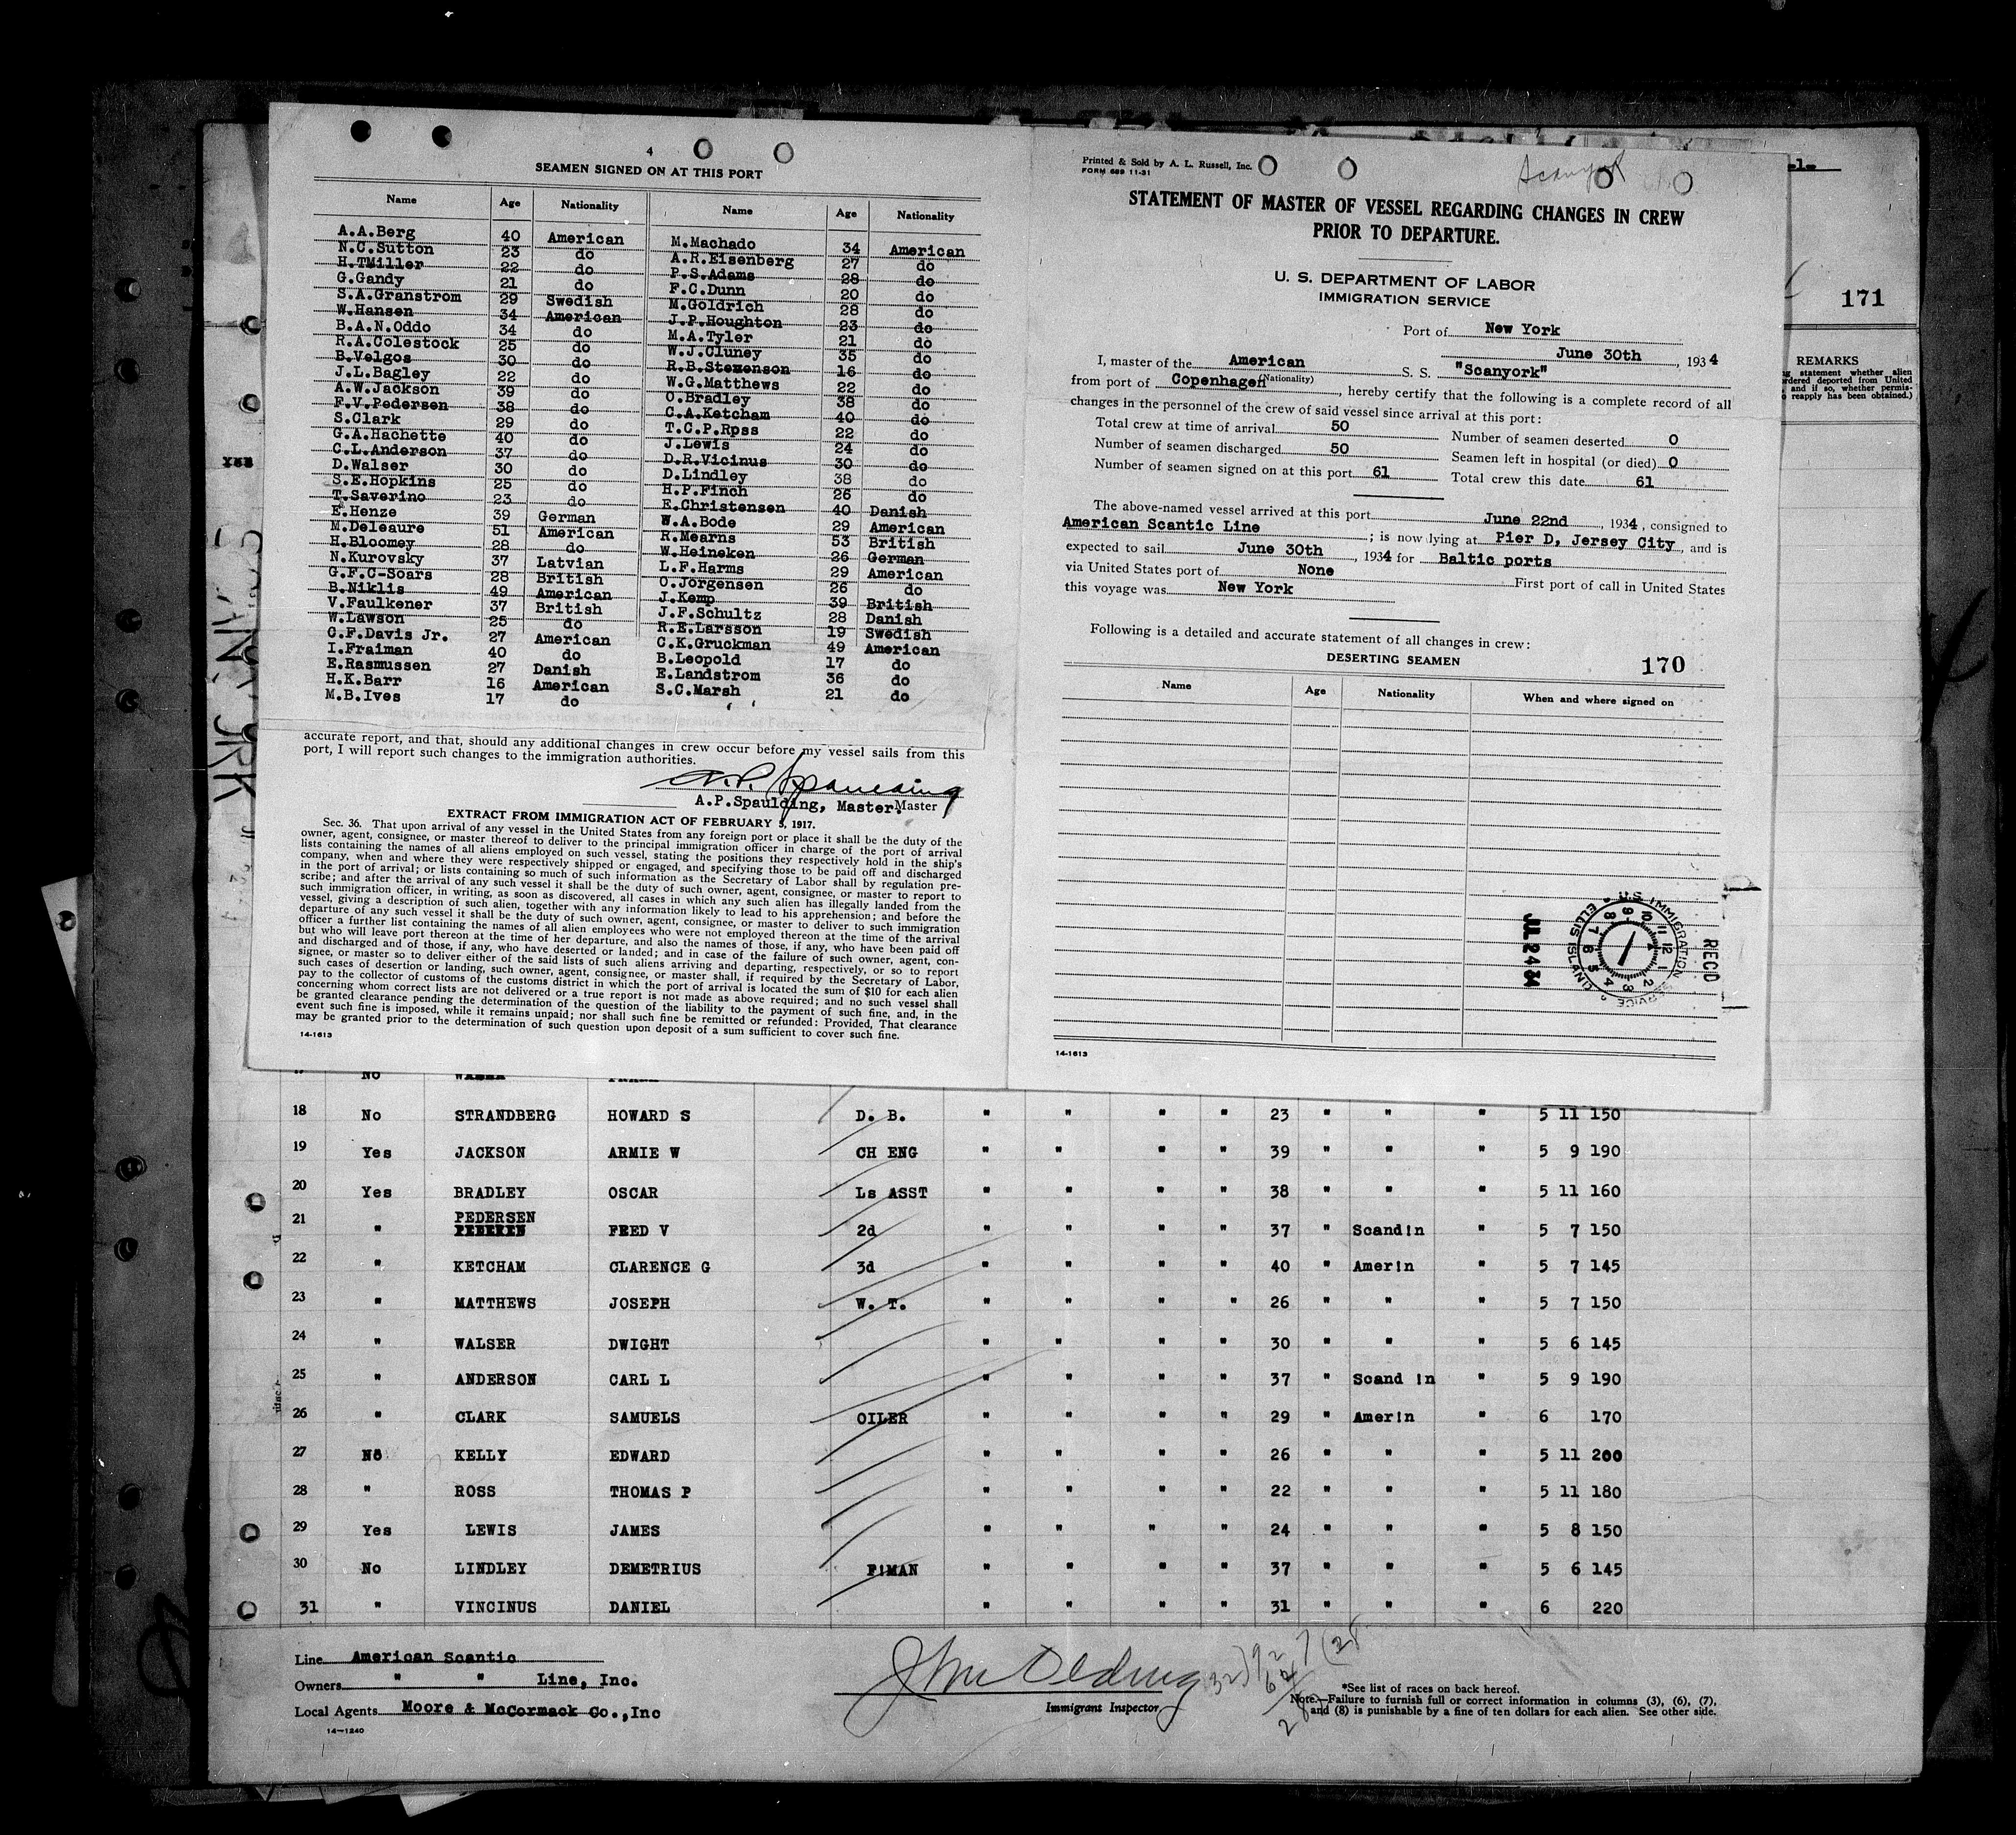 4
SEAMEN SIGNED ON AT THIS PORT
Name Age Nationality Name Age Nationality
A.A.Berg 40 American M.Machado 34 American
N.C.Sutton 23 do A.R.Eisenberg 27 do
H.TMiller 22 do P.S.Adams 28 do
G.Gandy 21 do F.C.Dunn 20 do
S.A.Granstrom 29 Swedish M.Goldrich 28 do
W.Hansen 34 American J.P.Houghton 23 do
B.A.N.Oddo 34 do M.A.Tyler 21 do
R.A.Colestock 25 do W.J.Cluney 35 do
B.Velgos 30 do R.B.Stemenson 16 do
J.L.Bagley 22 do W.G.Matthews 22 do
A.W.Jackson 39 do O.Bradley 38 do
F.V.Pedersen 38 do C.A.Ketcham 40 do
S.Clark 29 do T.C.P.Rpss 22 do
G.A.Hachette 40 do J.Lewis 24 do
C.L.Anderson 37 do D.R.Vicinus 30 do
D.Walser 30 do D.Lindley 38 do
S.E.Hopkins 25 do H.P.Finch 26 do
T.Saverino 23 do E.Christensen 40 Danish
E.Henze 39 German W.A.Bode 29 American
M.Deleaure 51 American R.Mearns 53 British
H.Bloomey 28 do W.Heineken 26 German
N.Kurovsky 37 Latvian L.F.Harms 29 American
G.F.C-Soars 28 British O.Jorgensen 26 do
B.Niklis 49 American J.Kemp 39 British
V.Faulkener 37 British J.F.Schultz 28 Danish
W.Lawson 25 do R.E.Larsson 19 Swedish
C.F.Davis Jr. 27 American C.K.Gruckman 49 American
I.Fraiman 40 do B.Leopold 17 do
E.Rasmussen 27 Danish E.Landstrom 36 do
H.K.Barr 16 American S.C.Marsh 21 do
M.B.Ives 17 do
accurate report, and that, should any additional changes in crew occur before my vessel sails from this
port, I will report such changes to the immigration authorities.
A.P. Spaulding
A.P.Spaulding, Master. Master
EXTRACT FROM IMMIGRATION ACT OF FEBRUARY 5, 1917.
Sec. 36. That upon arrival of any vessel in the United States from any foreign port or place it shall be the duty of the
owner, agent, consignee, or master thereof to deliver to the principal immigration officer in charge of the port of arrival
lists containing the names of all aliens employed on such vessel, stating the positions they respectively hold in the ship's
company, when and where they were respectively shipped or engaged, and specifying those to be paid off and discharged
in the port of arrival; or lists containing so much of such information as the Secretary of Labor shall by regulation pre-
scribe; and after the arrival of any such vessel it shall be the duty of such owner, agent, consignee, or master to report to
such immigration officer, in writing, as soon as discovered, all cases in which any such alien has illegally landed from the
vessel, giving a description of such alien, together with any information likely to lead to his apprehension; and before the
departure of any such vessel it shall be the duty of such owner, agent, consignee, or master to deliver to such immigration
officer a further list containing the names of all alien employees who were not employed thereon at the time of the arrival
but who will leave port thereon at the time of her departure, and also the names of those, if any, who have been paid off
and discharged and of those, if any, who have deserted or landed; and in case of the failure of such owner, agent, con-
signee, or master so to deliver either of the said lists of such aliens arriving and departing, respectively, or so to report
such cases of desertion or landing, such owner, agent, consignee, or master shall, if required by the Secretary of Labor,
pay to the collector of customs of the customs district in which the port of arrival is located the sum of $10 for each alien
concerning whom correct lists are not delivered or a true report is not made as above required; and no such vessel shall
be granted clearance pending the determination of the question of the liability to the payment of such fine, and, in the
even such fine is imposed, while it remains unpaid; nor shall such fine be remitted or refunded: Provided, That clearance
may be granted prior to the determination of such question upon deposit of a sum sufficient to cover such fine.
14-1613
Printed & Sold by A. L. Russell, Inc.
FORM 689 11-31
Scanyork
STATEMENT OF MASTER OF VESSEL REGARDING CHANGES IN CREW
PRIOR TO DEPARTURE.
U. S. DEPARTMENT OF LABOR
IMMIGRATION SERVICE
Port of New York
June 30th, 1934
I, master of the American S. S. "Scanyork"
(Nationality)
from port of Copenhagen, hereby certify that the following is a complete record of all
changes in the personnel of the crew of said vessel since arrival at this port:
Total crew at time of arrival 50 Number of seamen deserted 0
Number of seamen discharged 50 Seamen left in hospital (or died) 0
Number of seamen signed on at this port 61 Total crew this date 61
The above-named vessel arrived at this port June 22nd, 1934, consigned to
American Scantic Line; is now lying at Pier D, Jersey City, and is
expected to sail June 30th, 1934 for Baltic ports
via United States port of None First port of call in United States
this voyage was New York
Following is a detailed and accurate statement of all changes in crew:
DESERTING SEAMEN 170
Name Age Nationality When and where signed on
REC'D
U.S. IMMIGRATION SERVICE ELLIS ISLAND
JUL 2 4 34
14-1613
-1-
171
REMARKS
statement whether alien
ordered deported from United
and if so, whether permis-
o reapply has been obtained.)
Yes
18 No STRANDBERG HOWARD S D. B. " " " " 23 " " " 5 11 150
19 Yes JACKSON ARMIE W CH ENG " " " " 39 " " " 5 9 190
20 Yes BRADLEY OSCAR Ls ASST " " " " 38 " " " 5 11 160
21 " PEDERSEN FRED V 2d " " " " 37 " Scand!n " 5 7 150
22 " KETCHAM CLARENCE G 3d " " " " 40 " Amer!n " 5 7 145
23 " MATTHEWS JOSEPH W. T. " " " " 26 " " " 5 7 150
24 " WALSER DWIGHT " " " " 30 " " " 5 6 145
25 " ANDERSON CARL L " " " " 37 " Scand !n " 5 9 190
26 " CLARK SAMUELS OILER " " " " 29 " Amer!n " 6 170
27 No KELLY EDWARD " " " " 26 " " " 5 11 200
28 " ROSS THOMAS P " " " " 22 " " " 5 11 180
29 Yes LEWIS JAMES " " " " 24 " " " 5 8 150
30 No LINDLEY DEMETRIUS F!MAN " " " " 37 " " " 5 6 145
31 " VINCINUS DANIEL " " " " 31 " " " 6 220
Line American Scantic
Owners " " Line, Inc.
Local Agents Moore & McCormack Co.,Inc
14-1240
Immigrant Inspector
*See list of races on back hereof.
Note.—Failure to furnish full or correct information in columns (3), (6), (7),
and (8) is punishable by a fine of ten dollars for each alien. See other side.